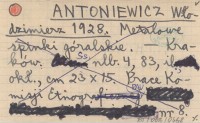 ANTONIEWICZ Wło-
dzimierz 1928. Metalowe
spinki góralskie. – Kra-
ków. nlb. 4, 83, il.
okł., cm 23 x 15. Prace Ko-
misji Etnograf.
nr 8.